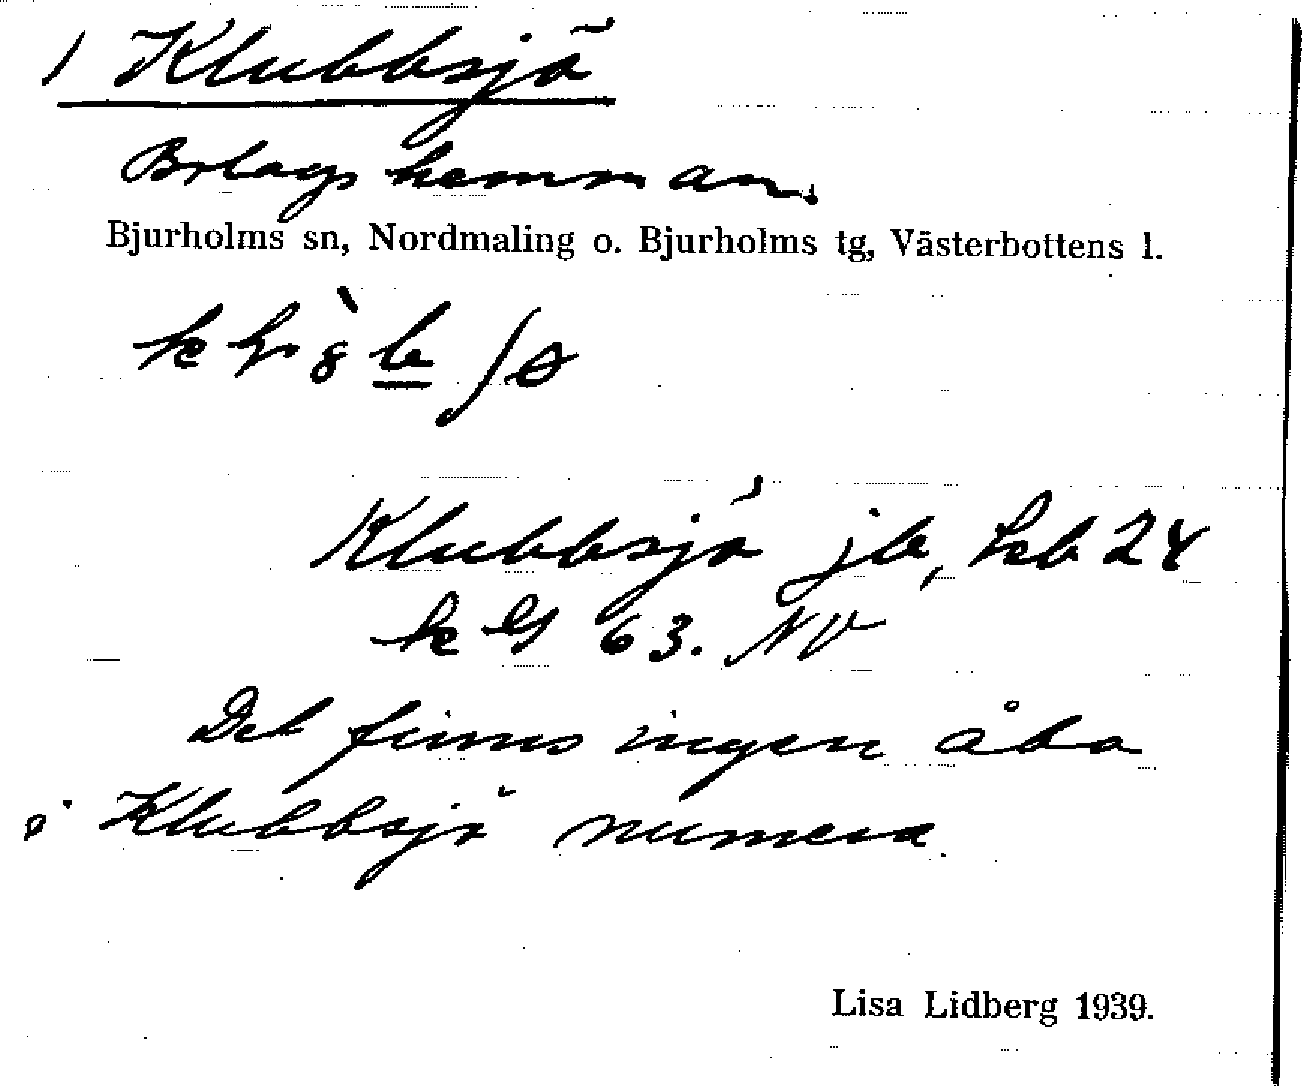 1 Klubbsjö
Bolags hemman.
Bjurholms sn, Nordmaling o. Bjurholms tg, Västerbottens l.
Klubbsjö jb, kb 24
63. NV
Det finns ingen åbo
i Klubbsjö numera
Lisa Lidberg 1939.